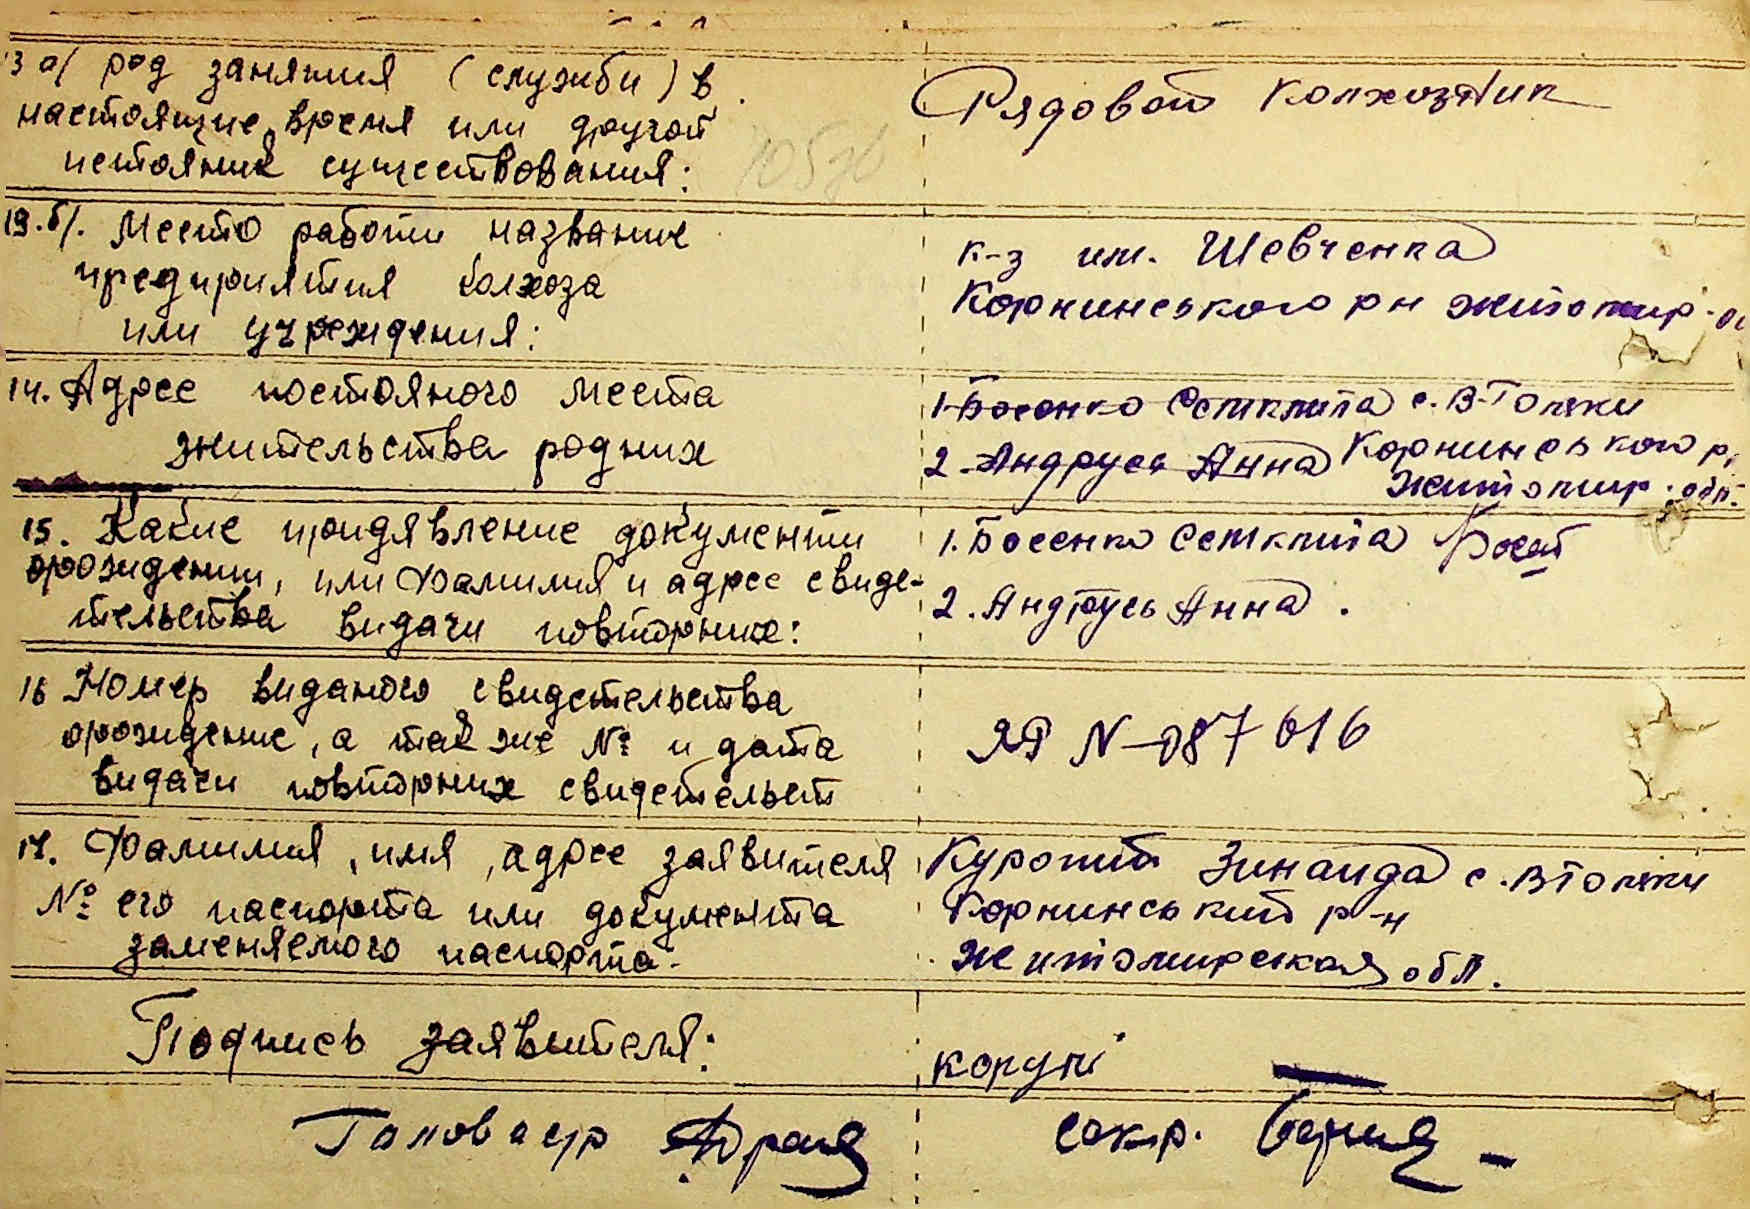 13 а/ род занятия (служби) в
настоящие время или другой
истояник существования:
Рядовой колхозник
13.б/. Место работи название
предприятия колхоза
или учреждения:
к-з им. Шевченка
Корнинського рн житомир.
14. Адрес постояного места
жительства родних
1. Босенко с. В-Топоки
2. Андрусь Анна Корнинського р.
Житомир. обл.
15. Какие придявление документи
орождении, или Фамилия и адрес свиде-
тельства видачи повторних:
1. Босенко
2. Андрусь Анна.
16 Номер виданого свидетельства
орождение, а так же № и дата
видачи повторних свидетельст
ЯР N-087616
17. Фамилия, имя, адрес заявителя
№ его паспорта или документа
заменяемого паспорта.
Зинаида с.
Корнинський р-н
Житомирская обл.
Подпись заявителя:
Голова с/р
секр.